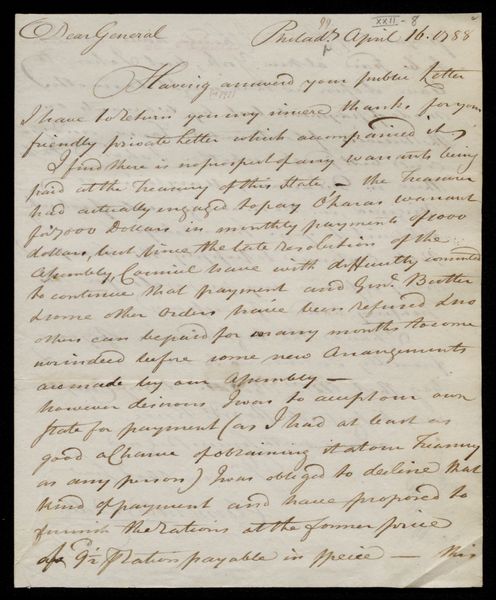 XXII - 8
Dear General Philada April 16. 1788
Having answerd your public Letter
I have to return you my sincere thanks for your
friendly private Letter which accompanied it,
I find there is no prospect of any warrants being
paid at the Treasury of this State — the Treasurer
had actually engaged to pay Oharas warrant
for 7000 Dollars in monthly payments of 1000
dollars, but since the late resolution of the
Assembly, Council have with difficulty consented
to continue that payment and Genl. Butler
& some other Orders have been refused & no
others can be paid for many months to come
nor indeed before some new Arrangements
are made by our Assembly —
however desirous I was to accept our own
State for payment (as I had at least as
good a Chance of obtaining it at our Treasury
as any person) I was obliged to decline that
kind of payment and have proposed to
furnish the rations at the former price
of ration payable in specie — this